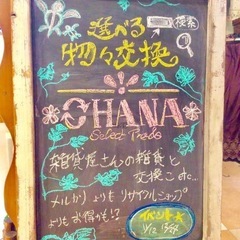 選べる
検索
物々交換
OHANA
Select Trade
雑貨屋さんの雑貨と
交換こ♪
メルカリよりもリサイクルショップ
よりもお得かも!?
イベント